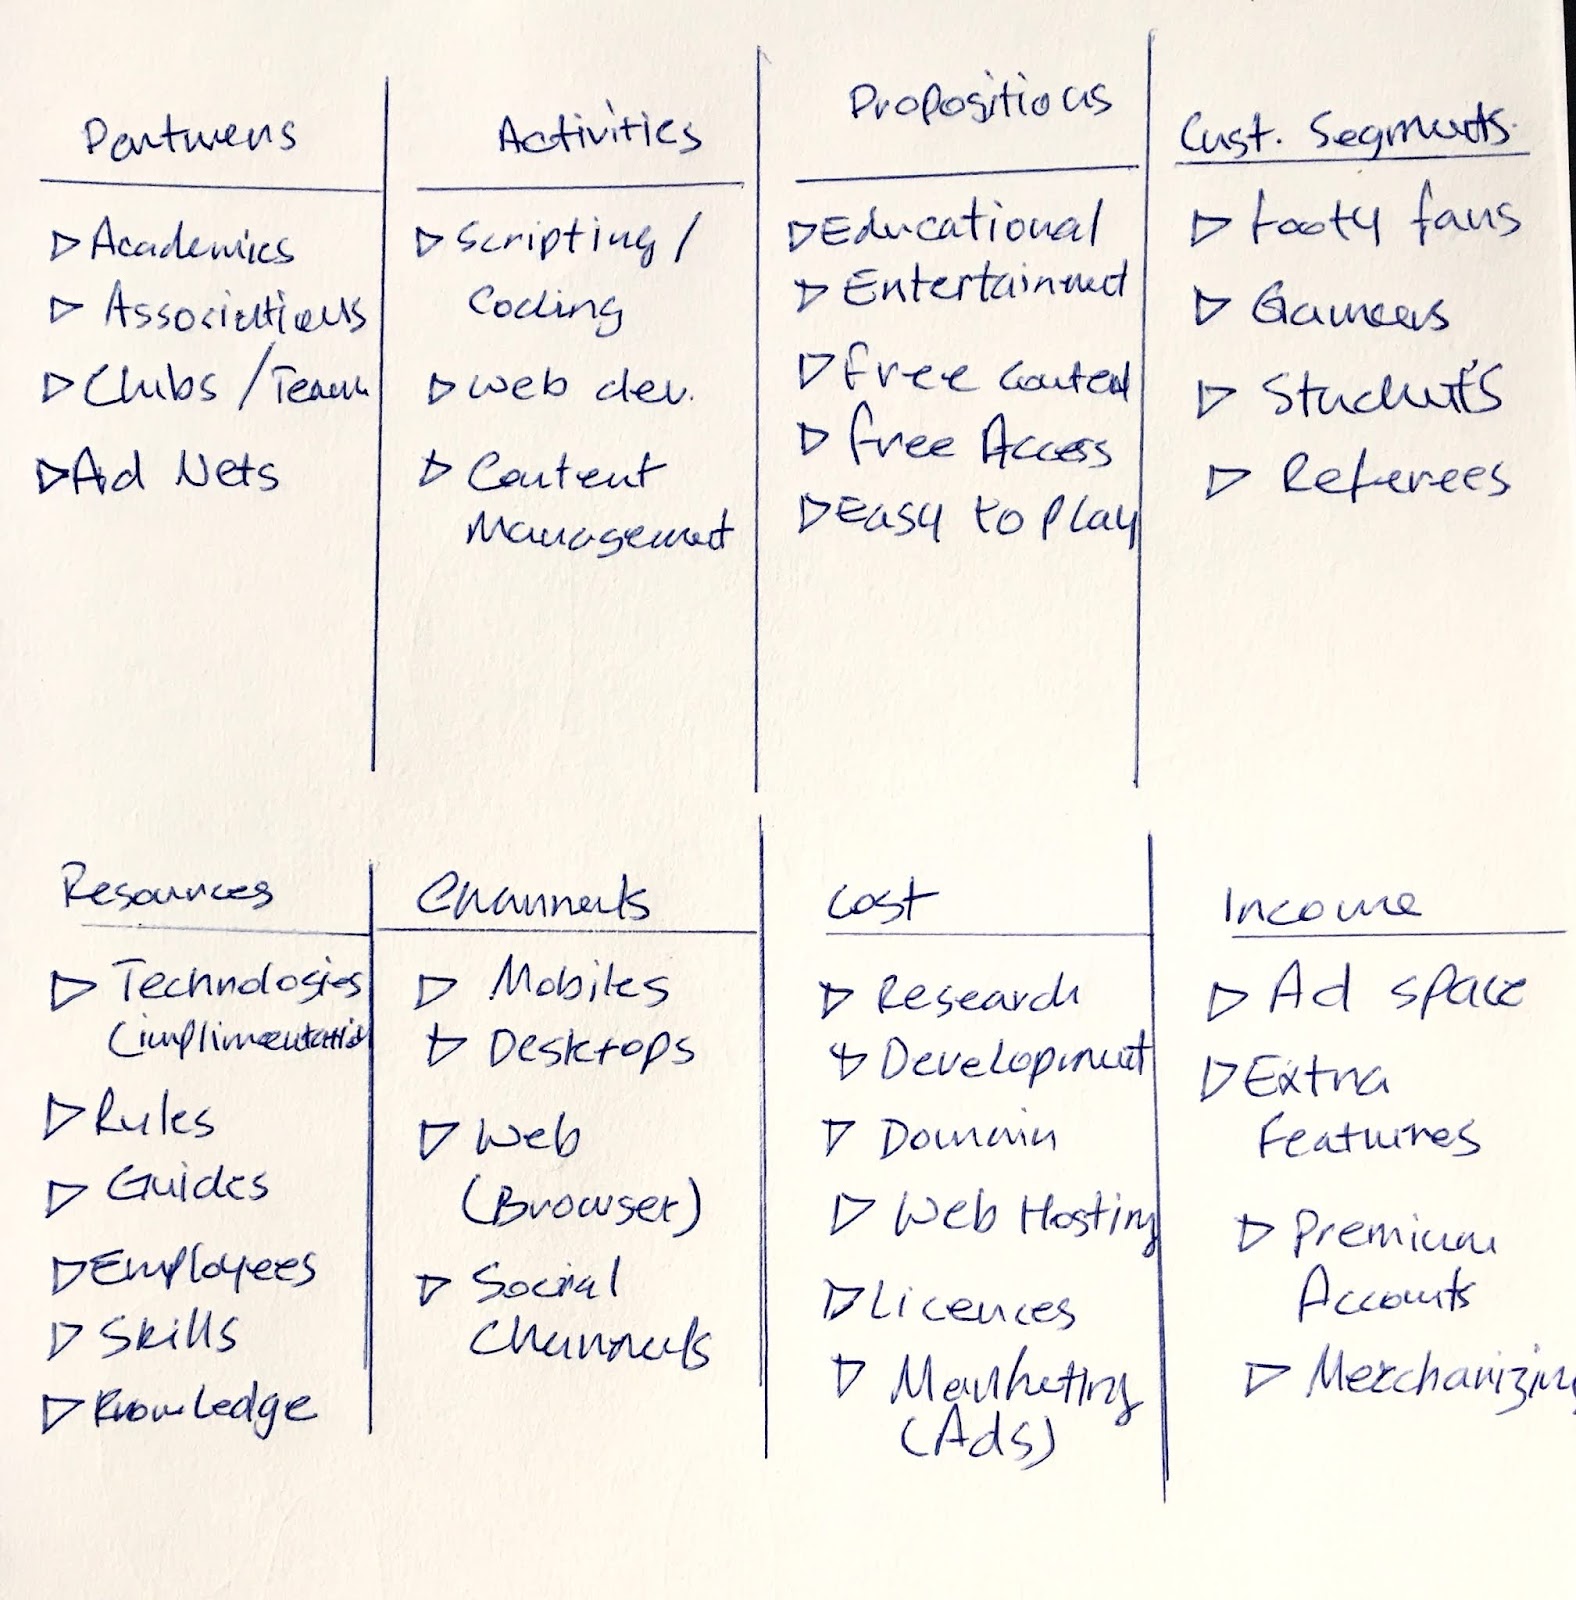 Partners
Academics
Associations
Clubs / Teams
Ad Nets
Activities
Scripting /
Coding
Web dev.
Content
Management
Propositions
Educational
Entertainment
Free Content
Free Access
Easy to play
Cust. Segments.
Footy fans
Gamers
Students
Referees
Resources
Technologies
(implimentation
Rules
Guides
Employees
Skills
Knowledge
Channels
Mobiles
Desktops
Web
(Browser)
Social
Channels
Cost
Research
Development
Domain
Web Hosting
Licences
Marketing
(Ads)
Income
Ad space
Extra
Features
Premium
Accounts
Merchanizing